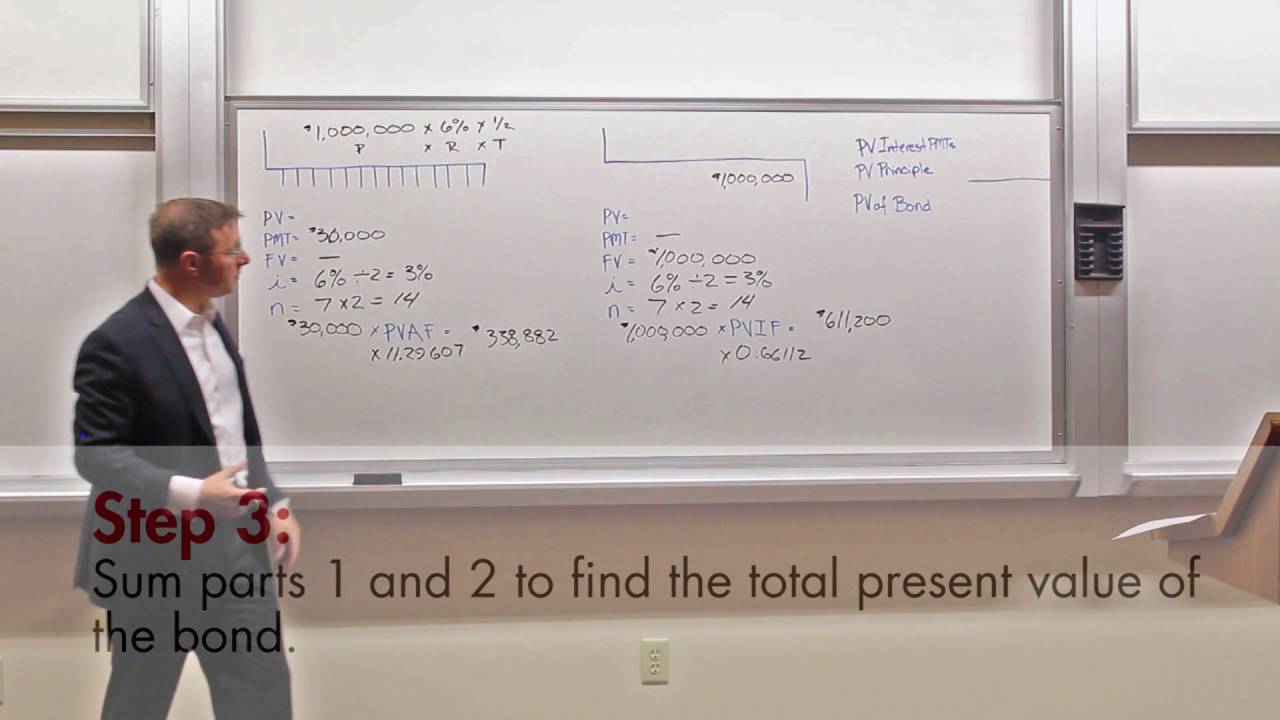 $1,000,000 x 6% x 1/2
P x R x T
PV=
PMT= $30,000
FV= —
i= 6% ÷2 = 3%
n= 7 x2 = 14
$30,000 x PVAF = $338,882
x 11.29607
$1,000,000
PV=
PMT= —
FV= $1,000,000
i= 6% ÷2 = 3%
n= 7 x2 = 14
$1,000,000 x PVIF = $611,200
x 0.66112
PV Interest PMTs
PV Principle
PV of Bond
Step 3:
Sum parts 1 and 2 to find the total present value of
the bond.